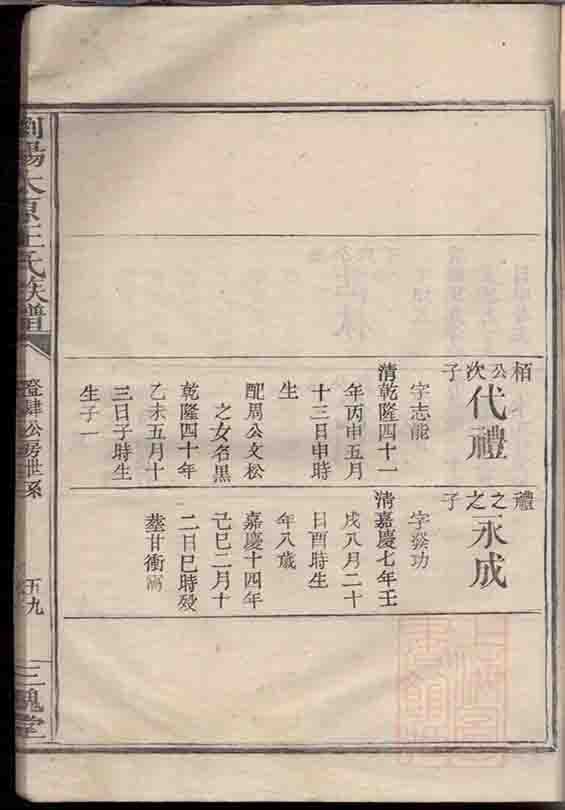 栢公次子
代禮
字志能
清乾隆四十一
年丙申五月
十三日申時
生
配周公文松
之女名黑
乾隆四十年
乙未五月十
三日子時生
生子一
禮之之子
永成
字發功
清嘉慶七年壬
戌八月二十
日酉時生
年八歲
嘉慶十四年
己巳二月十
二日巳時殁
塟甘衝窩
瀏陽太原王氏族譜
登肆公房世系
五九
三槐堂